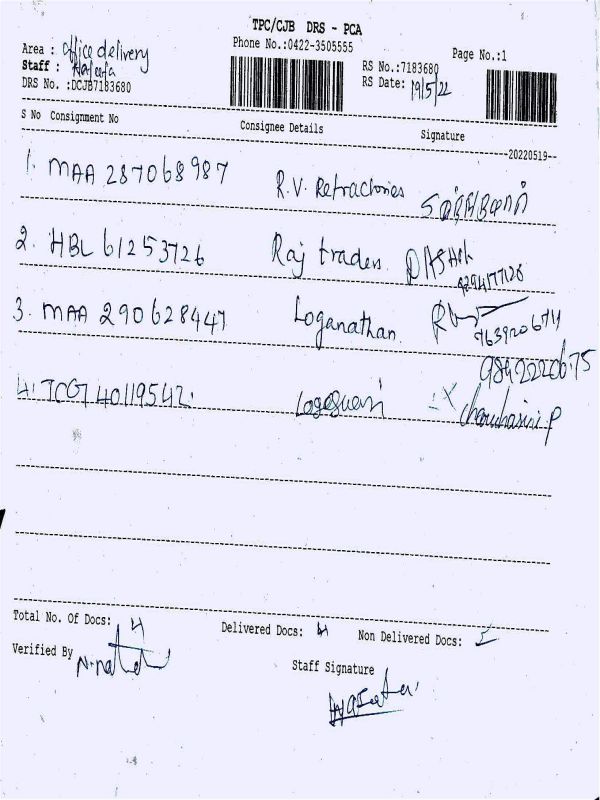 TPC/CJB DRS - PCA
Area : office delivery
Phone No.:0422-3505555
Page No.:1
Staff : Hafeefa
RS No.:7183680
DRS No. :DCJB7183680
RS Date: 19/5/22
S No Consignment No Consignee Details Signature
20220519
1. MAA 287068987 R.V. Refractories
2. HBL 61253726 Raj traders
3. MAA 290628447 Loganathan
7639206711
9842220675
4. TCG 40119542
Total No. Of Docs: 4 Delivered Docs: 4 Non Delivered Docs:
Verified By
Staff Signature